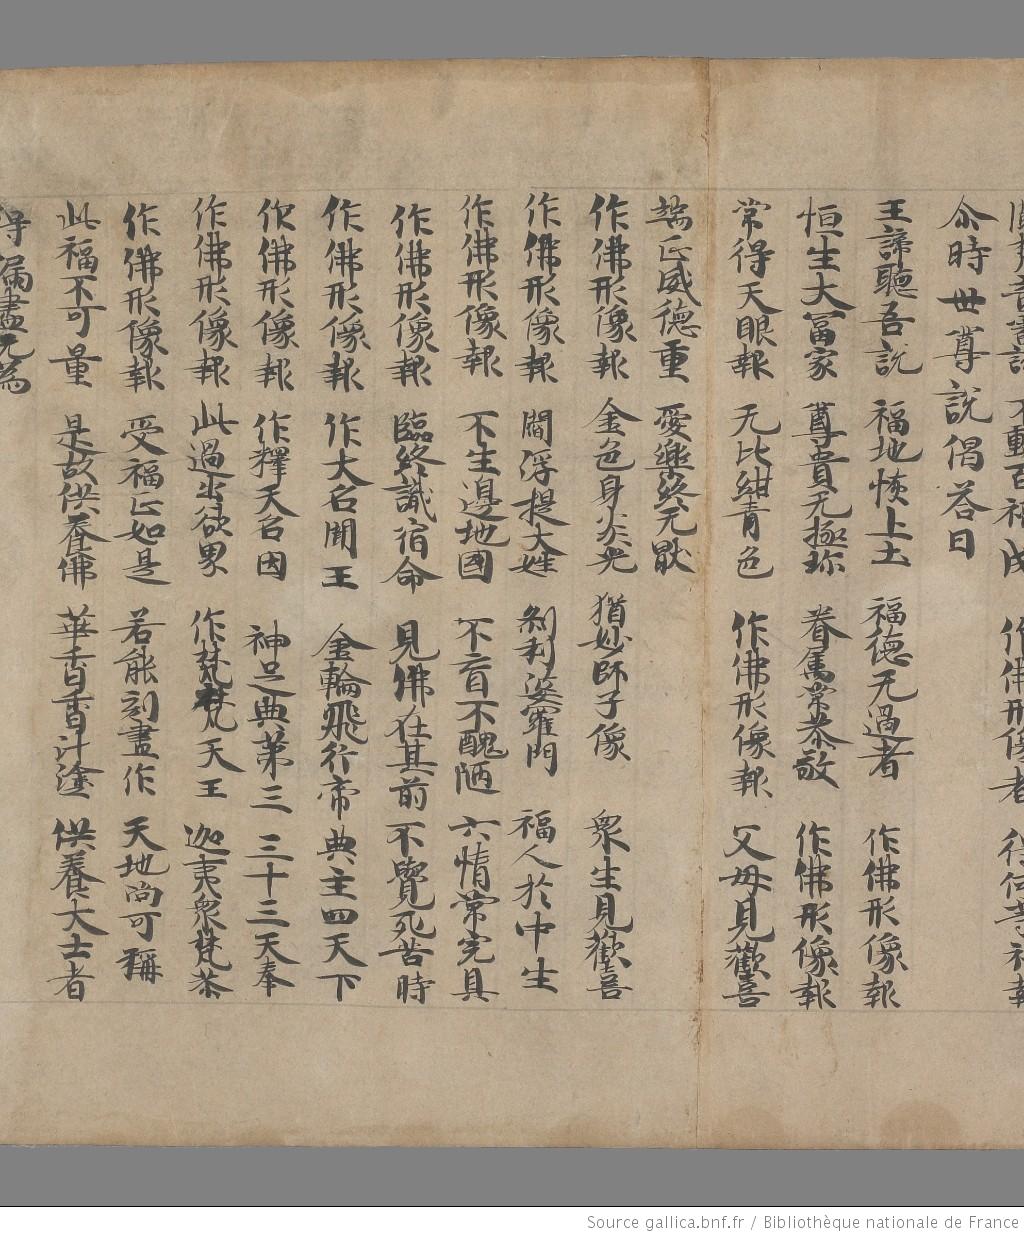 不動百福成 作佛形像者 得何等福報
尒時世尊說偈荅曰
王諦聽吾說 福地恢上士 福德无過者 作佛形像報
恒生大冨家 尊貴无極珎 眷属常恭敬 作佛形像報
常得天眼報 无比紺青色 作佛形像報 父母見歡喜
端正威德重 愛樂終无猒
作佛形像報 金色身炎光 猶妙師子像 衆生見歡喜
作佛形像報 閻浮提大姓 剎利婆羅門 福人於中生
作佛形像報 不生邊地國 不盲不醜陋 六情常完具
作佛形像報 臨終識宿命 見佛在其前 不覺死苦時
作佛形像報 作大名聞王 金輪飛行帝 典主四天下
作佛形像報 作釋天名因 神足典第三 三十三天奉
作佛形像報 此過出欲界 作梵梵天王 迦夷衆梵恭
作佛形像報 受福正如是 若能刻畫作 天地尚可稱
此福不可量 是故供養佛 華香香汁塗 供養大士者
得漏盡无為
Source gallica.bnf.fr / Bibliothèque nationale de France